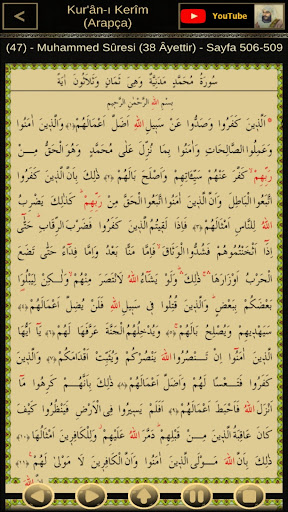 Kur'ân-ı Kerîm
(Arapça)
YouTube
(47) - Muhammed Sûresi (38 Âyettir) - Sayfa 506-509
سُورَةُ مُحَمَّدٍ مَدَنِيَّةٌ وَهِيَ ثَمَانٍ وَثَلَاثُونَ اٰيَةً
بِسْمِ اللّٰهِ الرَّحْمٰنِ الرَّحِيمِ
اَلَّذِينَ كَفَرُوا وَصَدُّوا عَنْ سَبِيلِ اللّٰهِ اَضَلَّ اَعْمَالَهُمْ ﴿١﴾ وَالَّذِينَ اٰمَنُوا
وَعَمِلُوا الصَّالِحَاتِ وَاٰمَنُوا بِمَا نُزِّلَ عَلٰى مُحَمَّدٍ وَهُوَ الْحَقُّ مِنْ
رَبِّهِمْ كَفَّرَ عَنْهُمْ سَيِّئَاتِهِمْ وَاَصْلَحَ بَالَهُمْ ﴿٢﴾ ذٰلِكَ بِاَنَّ الَّذِينَ كَفَرُوا
اتَّبَعُوا الْبَاطِلَ وَاَنَّ الَّذِينَ اٰمَنُوا اتَّبَعُوا الْحَقَّ مِنْ رَبِّهِمْ كَذٰلِكَ يَضْرِبُ
اللّٰهُ لِلنَّاسِ اَمْثَالَهُمْ ﴿٣﴾ فَاِذَا لَقِيتُمُ الَّذِينَ كَفَرُوا فَضَرْبَ الرِّقَابِ حَتّٰى
اِذَا اَثْخَنْتُمُوهُمْ فَشُدُّوا الْوَثَاقَ فَاِمَّا مَنًّا بَعْدُ وَاِمَّا فِدَاءً حَتّٰى تَضَعَ
الْحَرْبُ اَوْزَارَهَا ذٰلِكَ وَلَوْ يَشَاءُ اللّٰهُ لَانْتَصَرَ مِنْهُمْ وَلٰكِنْ لِيَبْلُوَا
بَعْضَكُمْ بِبَعْضٍ وَالَّذِينَ قُتِلُوا فِي سَبِيلِ اللّٰهِ فَلَنْ يُضِلَّ اَعْمَالَهُمْ ﴿٤﴾
سَيَهْدِيهِمْ وَيُصْلِحُ بَالَهُمْ ﴿٥﴾ وَيُدْخِلُهُمُ الْجَنَّةَ عَرَّفَهَا لَهُمْ ﴿٦﴾ يَا اَيُّهَا
الَّذِينَ اٰمَنُوا اِنْ تَنْصُرُوا اللّٰهَ يَنْصُرْكُمْ وَيُثَبِّتْ اَقْدَامَكُمْ ﴿٧﴾ وَالَّذِينَ
كَفَرُوا فَتَعْسًا لَهُمْ وَاَضَلَّ اَعْمَالَهُمْ ﴿٨﴾ ذٰلِكَ بِاَنَّهُمْ كَرِهُوا مَا
اَنْزَلَ اللّٰهُ فَاَحْبَطَ اَعْمَالَهُمْ ﴿٩﴾ اَفَلَمْ يَسِيرُوا فِي الْاَرْضِ فَيَنْظُرُوا كَيْفَ
كَانَ عَاقِبَةُ الَّذِينَ مِنْ قَبْلِهِمْ دَمَّرَ اللّٰهُ عَلَيْهِمْ وَلِلْكَافِرِينَ اَمْثَالُهَا ﴿١٠﴾
ذٰلِكَ بِاَنَّ اللّٰهَ مَوْلَى الَّذِينَ اٰمَنُوا وَاَنَّ الْكَافِرِينَ لَا مَوْلٰى لَهُمْ ﴿١١﴾